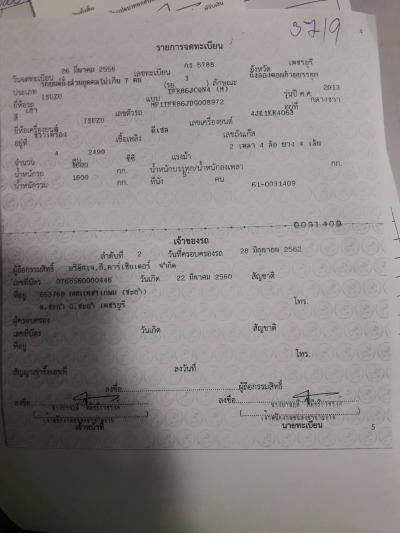 37/9
รายการจดทะเบียน
วันจดทะเบียน 26 มีนาคม 2556 เลขทะเบียน กร 5788 จังหวัด เพชรบุรี
ประเภท รถยนต์นั่งส่วนบุคคลไม่เกิน 7 คน (รย. 1) ลักษณะ
ยี่ห้อรถ ISUZU แบบ TFR86JCQN4 (M) รุ่นปี ค.ศ. 2013
สี เทา เลขตัวรถ อยู่ที่ กลางขวา
ยี่ห้อเครื่องยนต์ ISUZU เลขเครื่องยนต์ 4JK1KR4063
อยู่ที่ ขวาเครื่อง เชื้อเพลิง ดีเซล เลขถังแก๊ส
จำนวน 4 สูบ 2499 ซีซี แรงม้า 2 เพลา 4 ล้อ ยาง 4 เส้น
น้ำหนักรถ 1600 กก. น้ำหนักบรรทุก/น้ำหนักลงเพลา กก.
น้ำหนักรวม 1600 กก. ที่นั่ง 5 คน
61-0031409
0031409
เจ้าของรถ
ลำดับที่ 2 วันที่ครอบครองรถ 28 มิถุนายน 2562
ผู้ถือกรรมสิทธิ์ บริษัท จำกัด
เลขที่บัตร 0765560000446 วันเกิด 22 มีนาคม 2560 สัญชาติ
ที่อยู่ 553/69 ถนนเพชรเกษม (ชะอำ)
ต.ชะอำ อ.ชะอำ เพชรบุรี โทร.
ผู้ครอบครอง
เลขที่บัตร วันเกิด สัญชาติ
ที่อยู่
โทร.
สัญญาเช่าซื้อเลขที่ ลงวันที่
ลงชื่อ ผู้ถือกรรมสิทธิ์
ลงชื่อ ลงชื่อ
เจ้าหน้าที่ นายทะเบียน
5